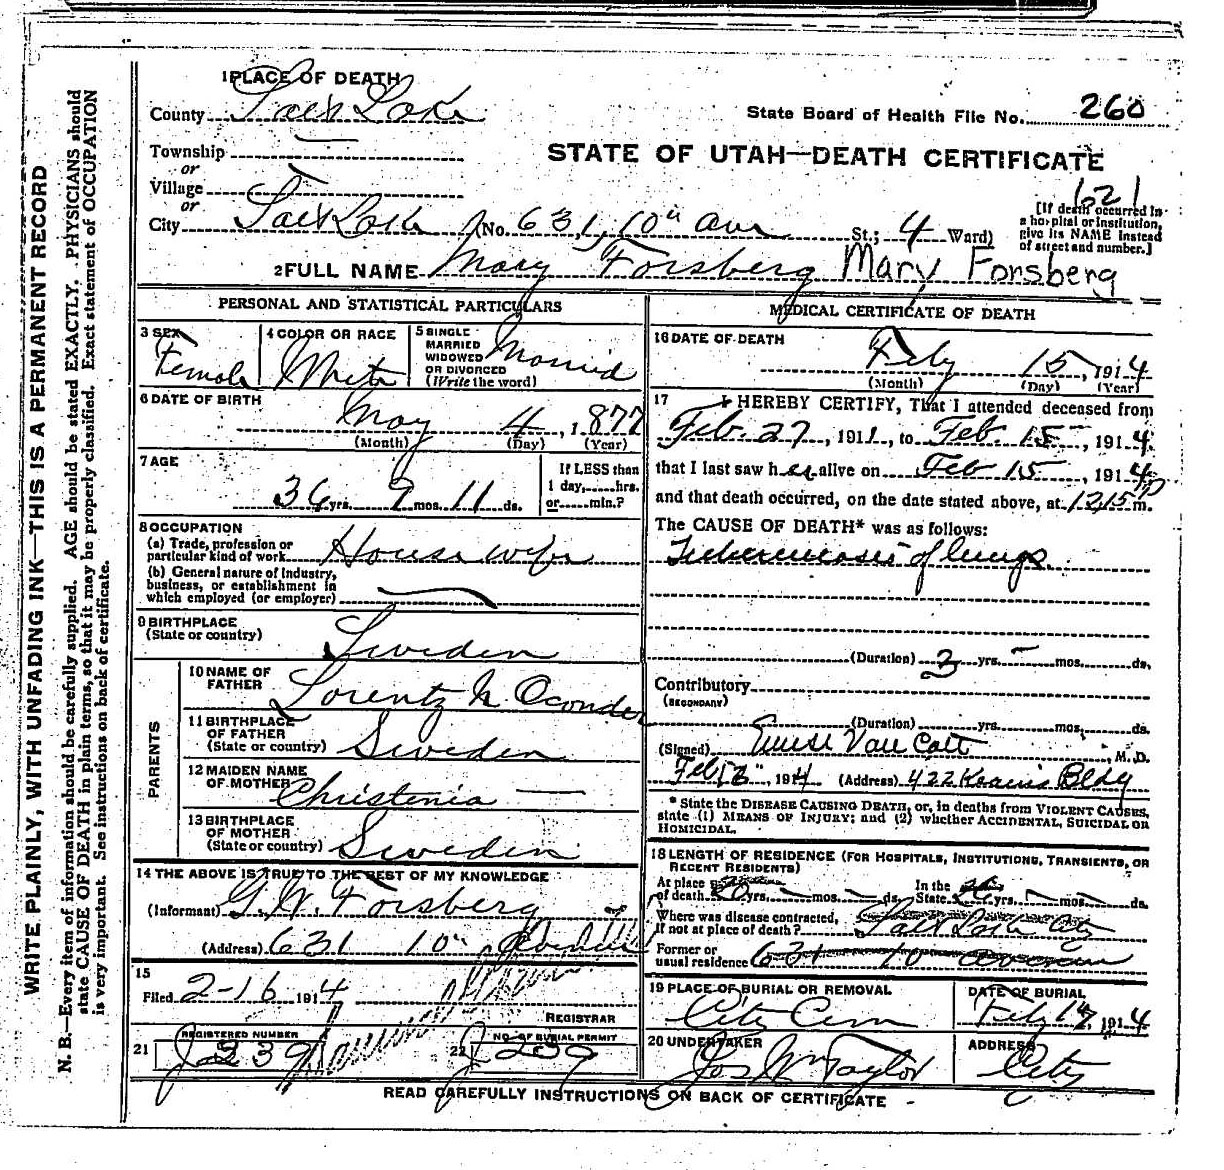 1 PLACE OF DEATH
County Salt Lake
State Board of Health File No. 260
Township
or
STATE OF UTAH—DEATH CERTIFICATE
Village
or
621
City Salt Lake (No. 631, 10" Ave St.; 4 Ward)
[If death occurred in a hospital or institution, give its NAME instead of street and number.]
2 FULL NAME Mary Forsberg Mary Forsberg
PERSONAL AND STATISTICAL PARTICULARS
3 SEX Female
4 COLOR OR RACE White
5 SINGLE MARRIED WIDOWED OR DIVORCED (Write the word) Married
6 DATE OF BIRTH
May 4, 1877
(Month) (Day) (Year)
7 AGE
36 yrs. 9 mos. 11 ds.
If LESS than
1 day, hrs.
or min.?
8 OCCUPATION
(a) Trade, profession or
particular kind of work Housewife
(b) General nature of industry,
business, or establishment in
which employed (or employer)
9 BIRTHPLACE
(State or country) Sweden
PARENTS
10 NAME OF
FATHER Lorentz N
11 BIRTHPLACE
OF FATHER
(State or country) Sweden
12 MAIDEN NAME
OF MOTHER Christenia —
13 BIRTHPLACE
OF MOTHER
(State or country) Sweden
14 THE ABOVE IS TRUE TO THE BEST OF MY KNOWLEDGE
(Informant) G. W. Forsberg
(Address) 631 10"
15
Filed 2-16 1914
REGISTRAR
REGISTERED NUMBER
21 J 239
NO. OF BURIAL PERMIT
22 J 239
MEDICAL CERTIFICATE OF DEATH
16 DATE OF DEATH
Feby 15, 1914
(Month) (Day) (Year)
17 I HEREBY CERTIFY, That I attended deceased from
Feb. 27, 1911, to Feb. 15, 1914.
that I last saw her alive on Feb 15, 1914
and that death occurred, on the date stated above, at 12,15 P m.
The CAUSE OF DEATH* was as follows:
Tuberculosis of lungs
(Duration) 3 yrs. — mos. ds.
Contributory
(SECONDARY)
(Duration) yrs. mos. ds.
(Signed) Van Cott, M. D.
Feb 1914 (Address) 422 Kearns Bldg
* State the DISEASE CAUSING DEATH, or, in deaths from VIOLENT CAUSES,
state (1) MEANS OF INJURY; and (2) whether ACCIDENTAL, SUICIDAL OR
HOMICIDAL.
18 LENGTH OF RESIDENCE (FOR HOSPITALS, INSTITUTIONS, TRANSIENTS, OR
RECENT RESIDENTS)
At place
of death yrs. mos. ds.
In the
State yrs. mos. ds.
Where was disease contracted,
if not at place of death? Salt Lake City
Former or
usual residence 631 10 avenue
19 PLACE OF BURIAL OR REMOVAL
City Cem
DATE OF BURIAL
Feby 1914
20 UNDERTAKER
Jos Wm Taylor
ADDRESS
City
READ CAREFULLY INSTRUCTIONS ON BACK OF CERTIFICATE
WRITE PLAINLY, WITH UNFADING INK—THIS IS A PERMANENT RECORD
N. B.—Every item of information should be carefully supplied. AGE should be stated EXACTLY. PHYSICIANS should
state CAUSE OF DEATH in plain terms, so that it may be properly classified. Exact statement of OCCUPATION
is very important. See instructions on back of certificate.